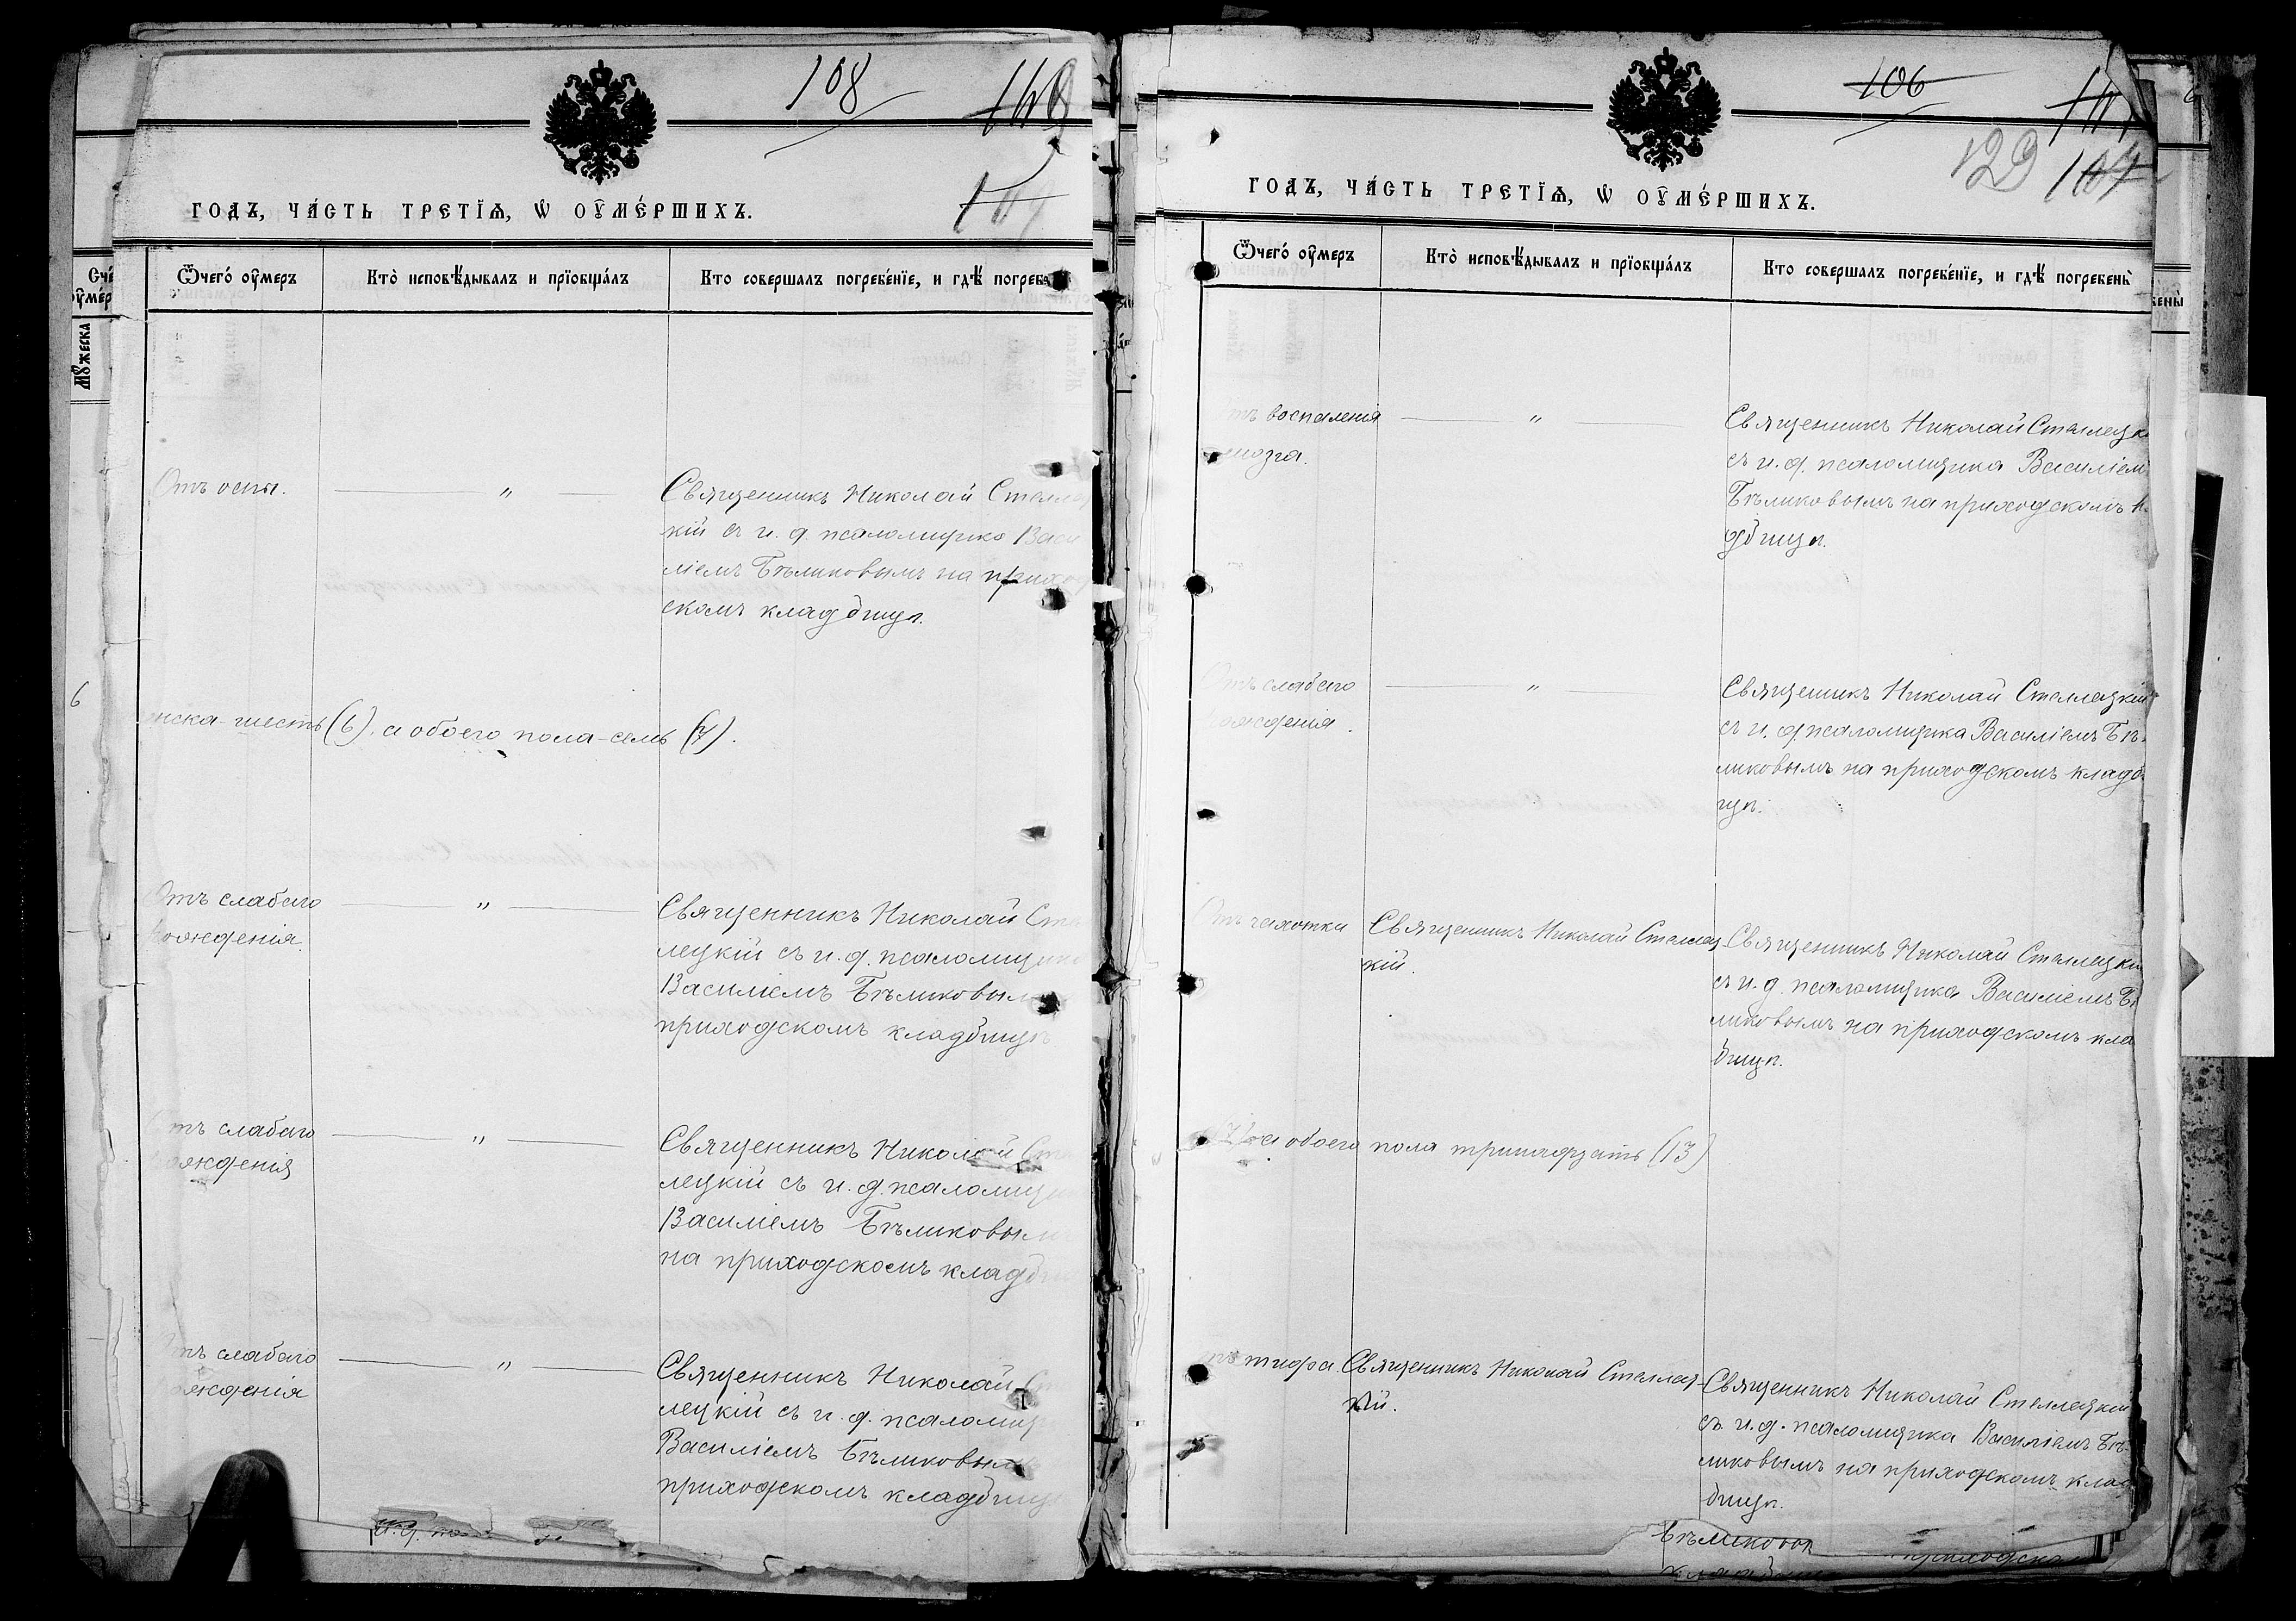 108
ГОДЪ, ЧА́СТЬ ТРЕТЇѦ, Ѡ҆ ОУ҆МЕ́РШИХЪ.
Ѿчегѡ́ оу҆́меръ
Кто̀ исповѣ́дывалъ и прїѡбща́лъ
Кто совершалъ погребе́нїе, и гдѣ̀ погреб
Отъ оспы.
"
Священникъ Николай Стеллец
кій съ и. д. псаломщика Васи
ліемъ Бѣликовымъ на приход
скомъ кладбищѣ.
нска-шесть (6), а обоего пола-семь (7).
Отъ слабаго
рожденія.
"
Священникъ Николай Стел
лецкій съ и. д. псаломщика
Василіемъ Бѣликовым
приходскомъ кладбищѣ
тъ слабаго
рожденія
"
Священникъ Николай Стел
лецкій съ и. д. псаломщи
Василіемъ Бѣликовым
на приходскомъ кладби
Отъ слабаго
рожденія
"
Священникъ Николай Ст
лецкій съ и. д. псаломщ
Василіемъ Бѣликовым
приходскомъ кладбищ
и. д.
Счé
оу҆мер
Мꙋжеска
6
106
129
107
ГОДЪ, ЧА́СТЬ ТРЕТЇѦ, Ѡ҆ ОУ҆МЕ́РШИХЪ.
Ѿчегѡ́ оу҆́меръ
Кто̀ исповѣ́дывалъ и прїѡбща́лъ
Кто совершалъ погребе́нїе, и гдѣ̀ погребены̀
тъ воспаленія
мозга.
"
Священникъ Николай Стеллецк
съ и. д. псаломщика Василіем
Бѣликовымъ на приходскомъ к
дбищѣ.
Отъ слабаго
рожденія.
"
Священникъ Николай Стеллецкій
съ и. д. псаломщика Василіемъ Бѣ-
ликовымъ на приходскомъ кладб
щѣ.
Отъ чахотки
Священникъ Николай Стеллец-
кій.
Священникъ Николай Стеллецкі
съ и. д. псаломщика Василіемъ Бѣ
ликовымъ на приходскомъ кла
бищѣ.
а обоего пола тринадцать (13)
тъ тифа
Священникъ Николай Стеллец-
кій.
Священникъ Николай Стеллецкій
съ и. д. псаломщика Василіемъ Бѣ-
ликовымъ на приходскомъ клад
бищѣ.
Бѣликовы
приходско